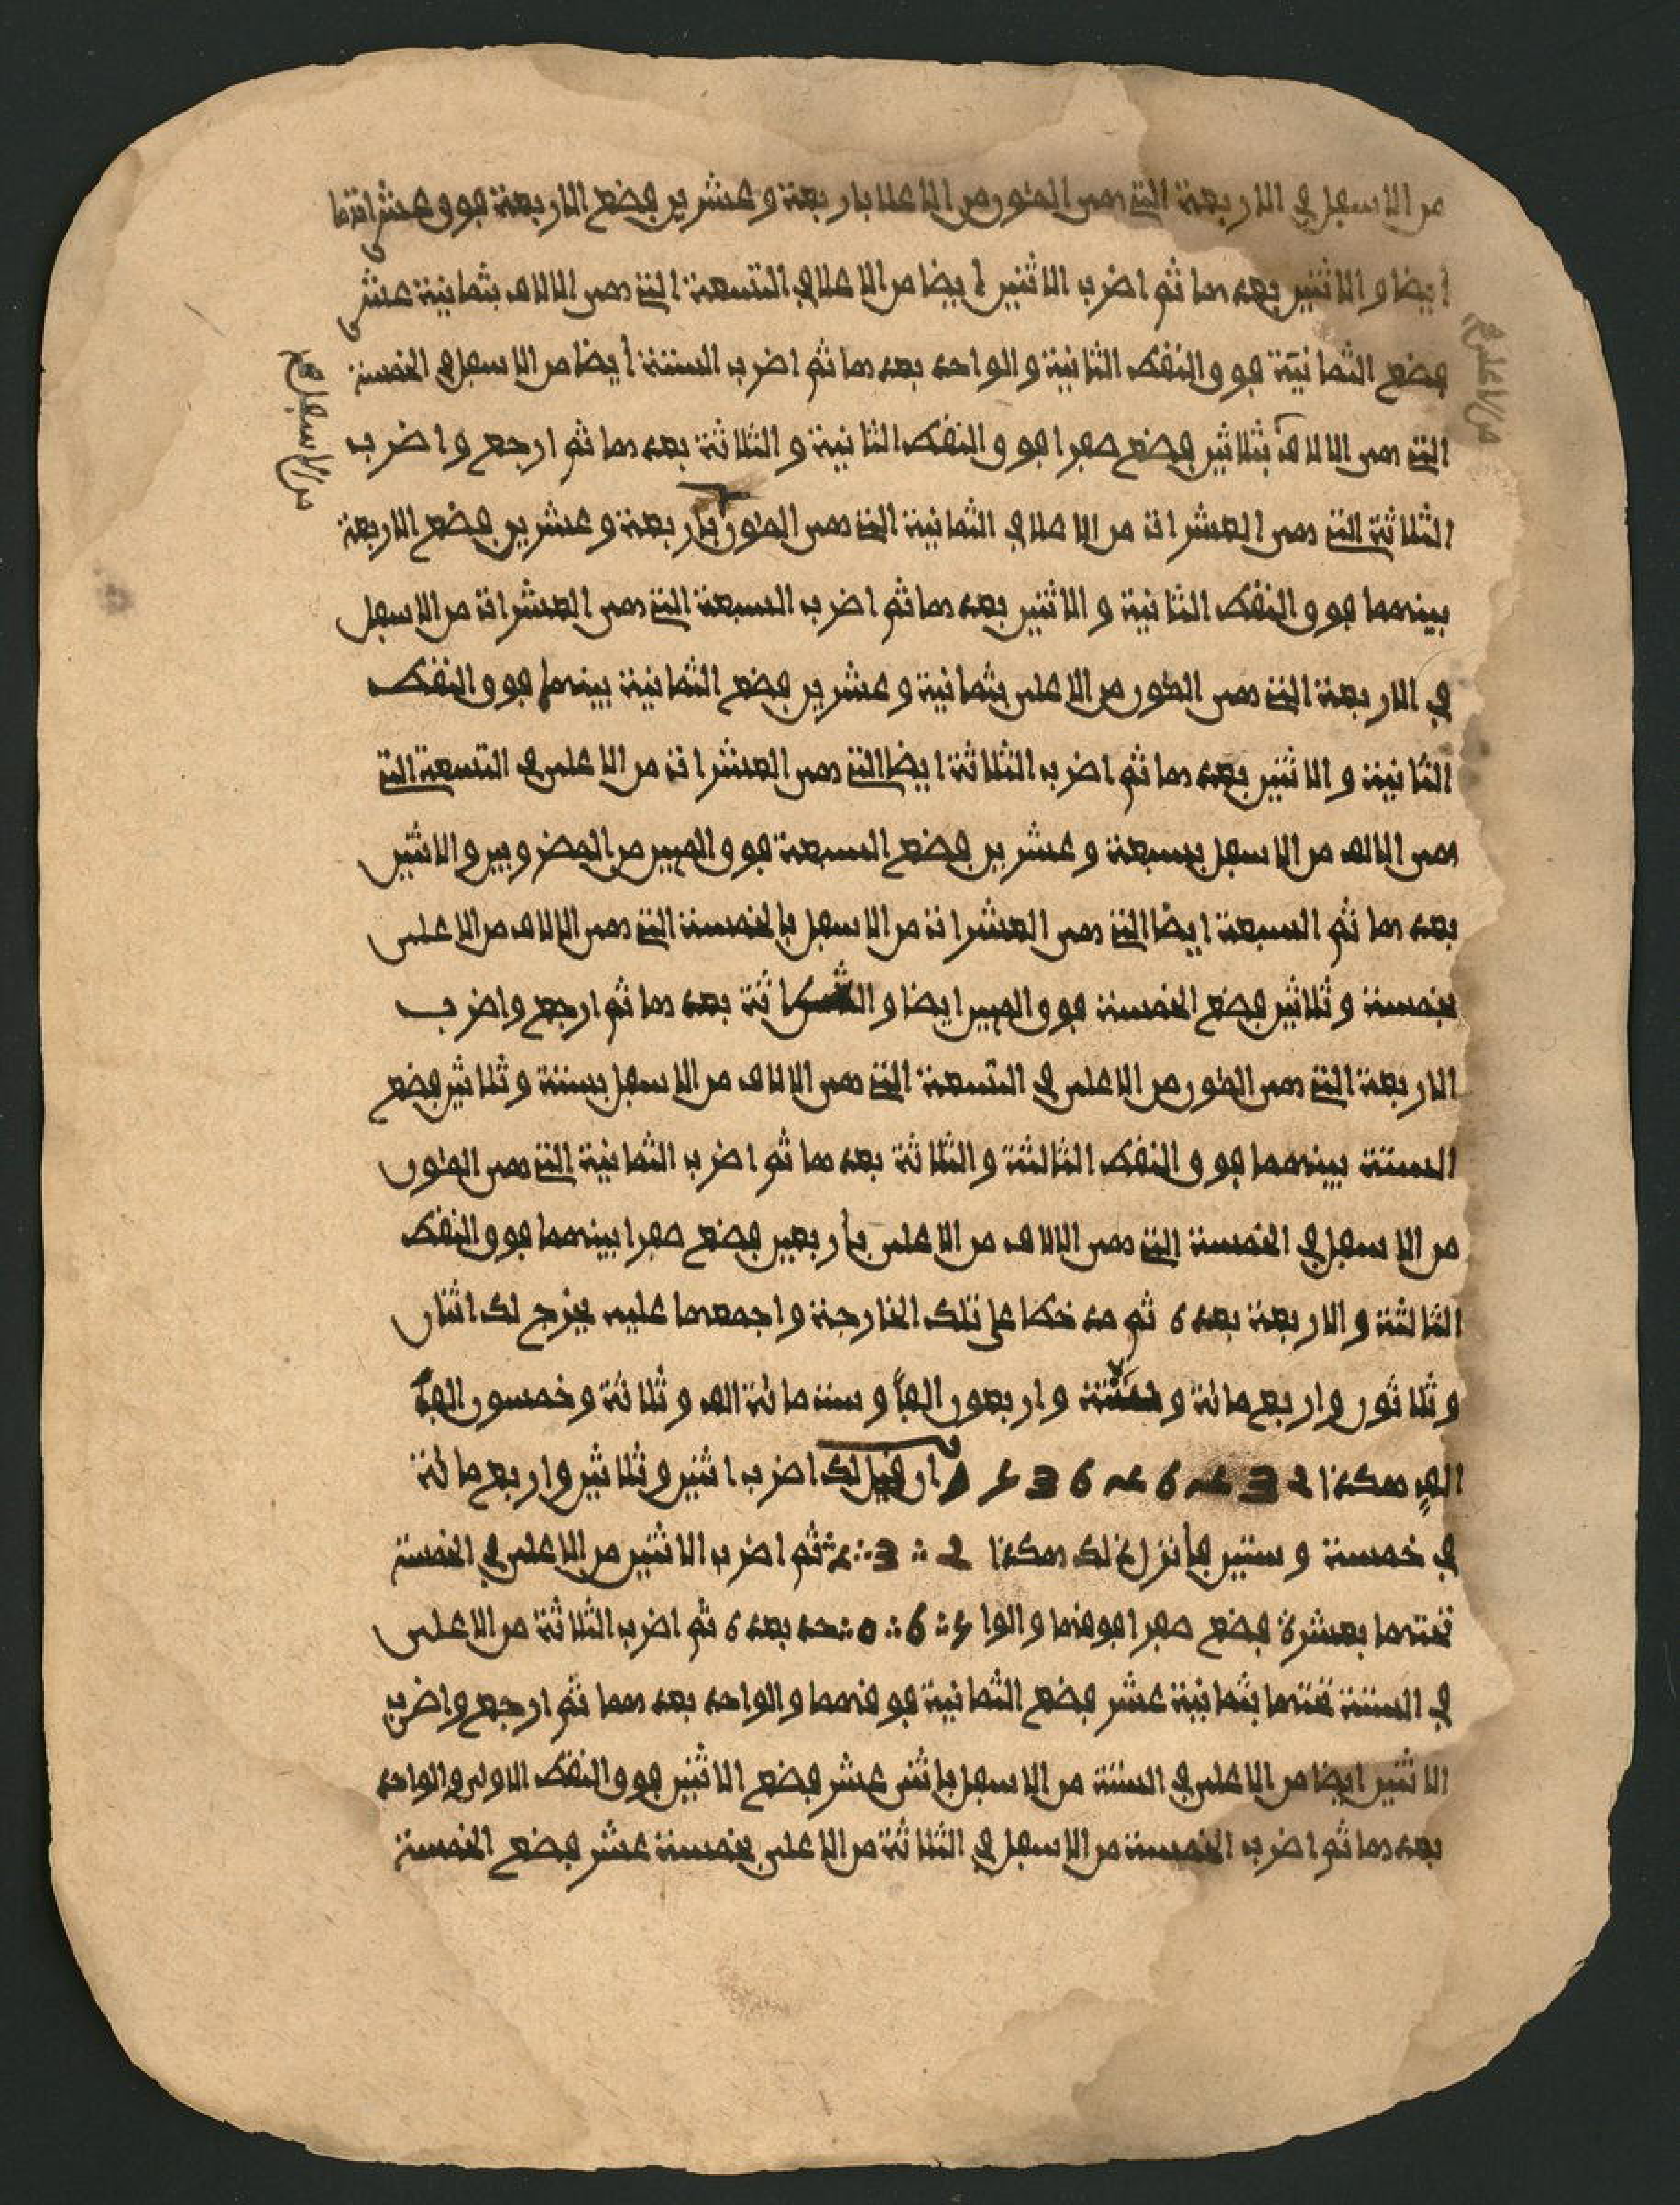 من الاسفل في الاربعة التي هي المئور من الاعلا باربعة وعشرين فضع الاربعة فوق عشراتها
أيضا والاثنين بعدها ثم اضرب الاثنين أيضا من الاعلا في التسعة التي هي الالاف بثمانية عشر
فضع الثمانية فوق النفط الثانية والواحد بعدها ثم اضرب الستة أيضا من الاسفل في الخمسة
التي هي الالاف بثلاثين فضع صفرا فوق النفط الثانية والثلاثة بعدها ثم ارجع واضرب
الثلاثة التي هي العشرات من الاعلا في الثمانية التي هي المئور باربعة وعشرين فضع الاربعة
بينهما فوق النفط الثانية والاثنين بعدها ثم اضرب السبعة التي هي العشرات من الاسفل
في الاربعة التي هي المئور من الاعلى بثمانية وعشرين فضع الثمانية بينهما فوق النفط
الثانية والاثنين بعدها ثم اضرب الثلاثة ايضا التي هي العشرات من الاعلى في التسعة التي
هي الالف من الاسفل بسبعة وعشرين فضع السبعة فوق المير من المضروبين والاثنين
بعدها ثم السبعة ايضا التي هي العشرات من الاسفل بالخمسة التي هي الالاف من الاعلى
بخمسة وثلاثين فضع الخمسة فوق المير ايضا والثلاثة بعدها ثم ارجع واضرب
الاربعة التي هي المئور من الاعلى في التسعة التي هي الالاف من الاسفل بستة وثلاثين فضع
الستة بينهما فوق النفط الثالثة والثلاثة بعدها ثم اضرب الثمانية التي هي المئور
من الاسفل في الخمسة التي هي الالاف من الاعلى بأربعين فضع صفرا بينهما فوق النفط
الثالثة والاربعة بعده ثم مد خطا على تلك الخارجة واجمعها عليه يخرج لك اثنان
وثلاثون واربع مائة و واربعون الفا وست مائة الف وثلاثة وخمسون الف
الف هكذا ان قيل لك اضرب اثنين وثلاثين واربع مائة
في خمسة وستين فأنزل ذلك هكذا 2 ∴ 3 ∴ 4 ∴ ثم اضرب الاثنين من الاعلى في الخمسة
تحتها بعشرة فضع صفرا فوقها والوا 5 ∴ 6 ∴ 0 ∴ حد بعده ثم اضرب الثلاثة من الاعلى
في الستة تحتها بثمانية عشر فضع الثمانية فوقهما والواحد بعدهما ثم ارجع واضرب
الاثنين ايضا من الاعلى في الستة من الاسفل باثني عشر فضع الاثنين فوق النفط الاولى والواحد
بعدها ثم اضرب الخمسة من الاسفل في الثلاثة من الاعلى بخمسة عشر فضع الخمسة
من الاعلى صح
من الاسفل صح